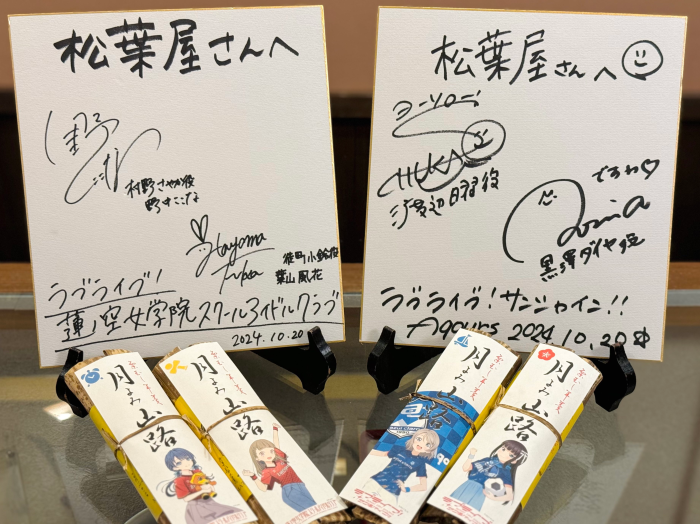 松葉屋さんへ
村野さやか役
野中ここな
Hayama
Fuka
徒町小鈴役
葉山風花
ラブライブ!
蓮ノ空女学院スクールアイドルクラブ
2024.10.20
松葉屋さんへ
ヨーソロー
SHUKA
渡辺曜役
ですわ♡
黒澤ダイヤ役
ラブライブ!サンシャイン!!
Aqours 2024.10.20
月よみ山路
月よみ山路
月よみ山路
月よみ山路